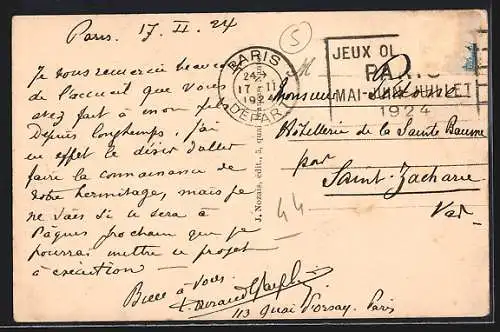 Paris. 17. II. 24
5
PARIS
24
17 - II
192
DÉPART
JEUX OL
PARIS
MAI-JUIN-JUILLET
1924
Je vous remercie beaucoup
de l'accueil que vous
avez fait à mon fils
Depuis longtemps, j'ai
en effet le désir d'aller
faire la connaissance de
votre hermitage, mais je
ne sais si ce sera à
Pâques prochain que je
pourrai mettre ce projet
à exécution —
Bien à vous.
113 Quai d'Orsay. Paris
J. Nozais, édit., 5, quai
Monsieur
Hôtellerie de la Sainte Baume
par
Saint-Zacharie
Var
44